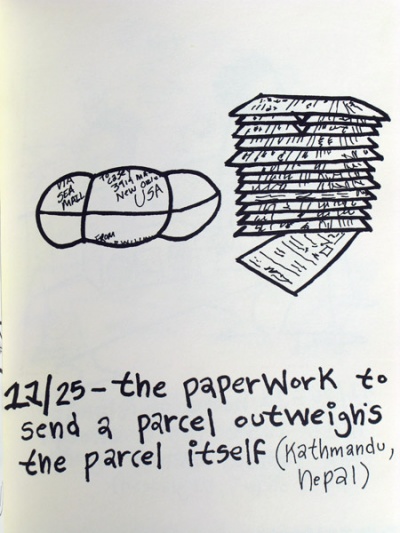 VIA
SEA
MAIL
TO
USA
FROM
11/25 - the paperwork to
send a parcel outweighs
the parcel itself (Kathmandu,
Nepal)